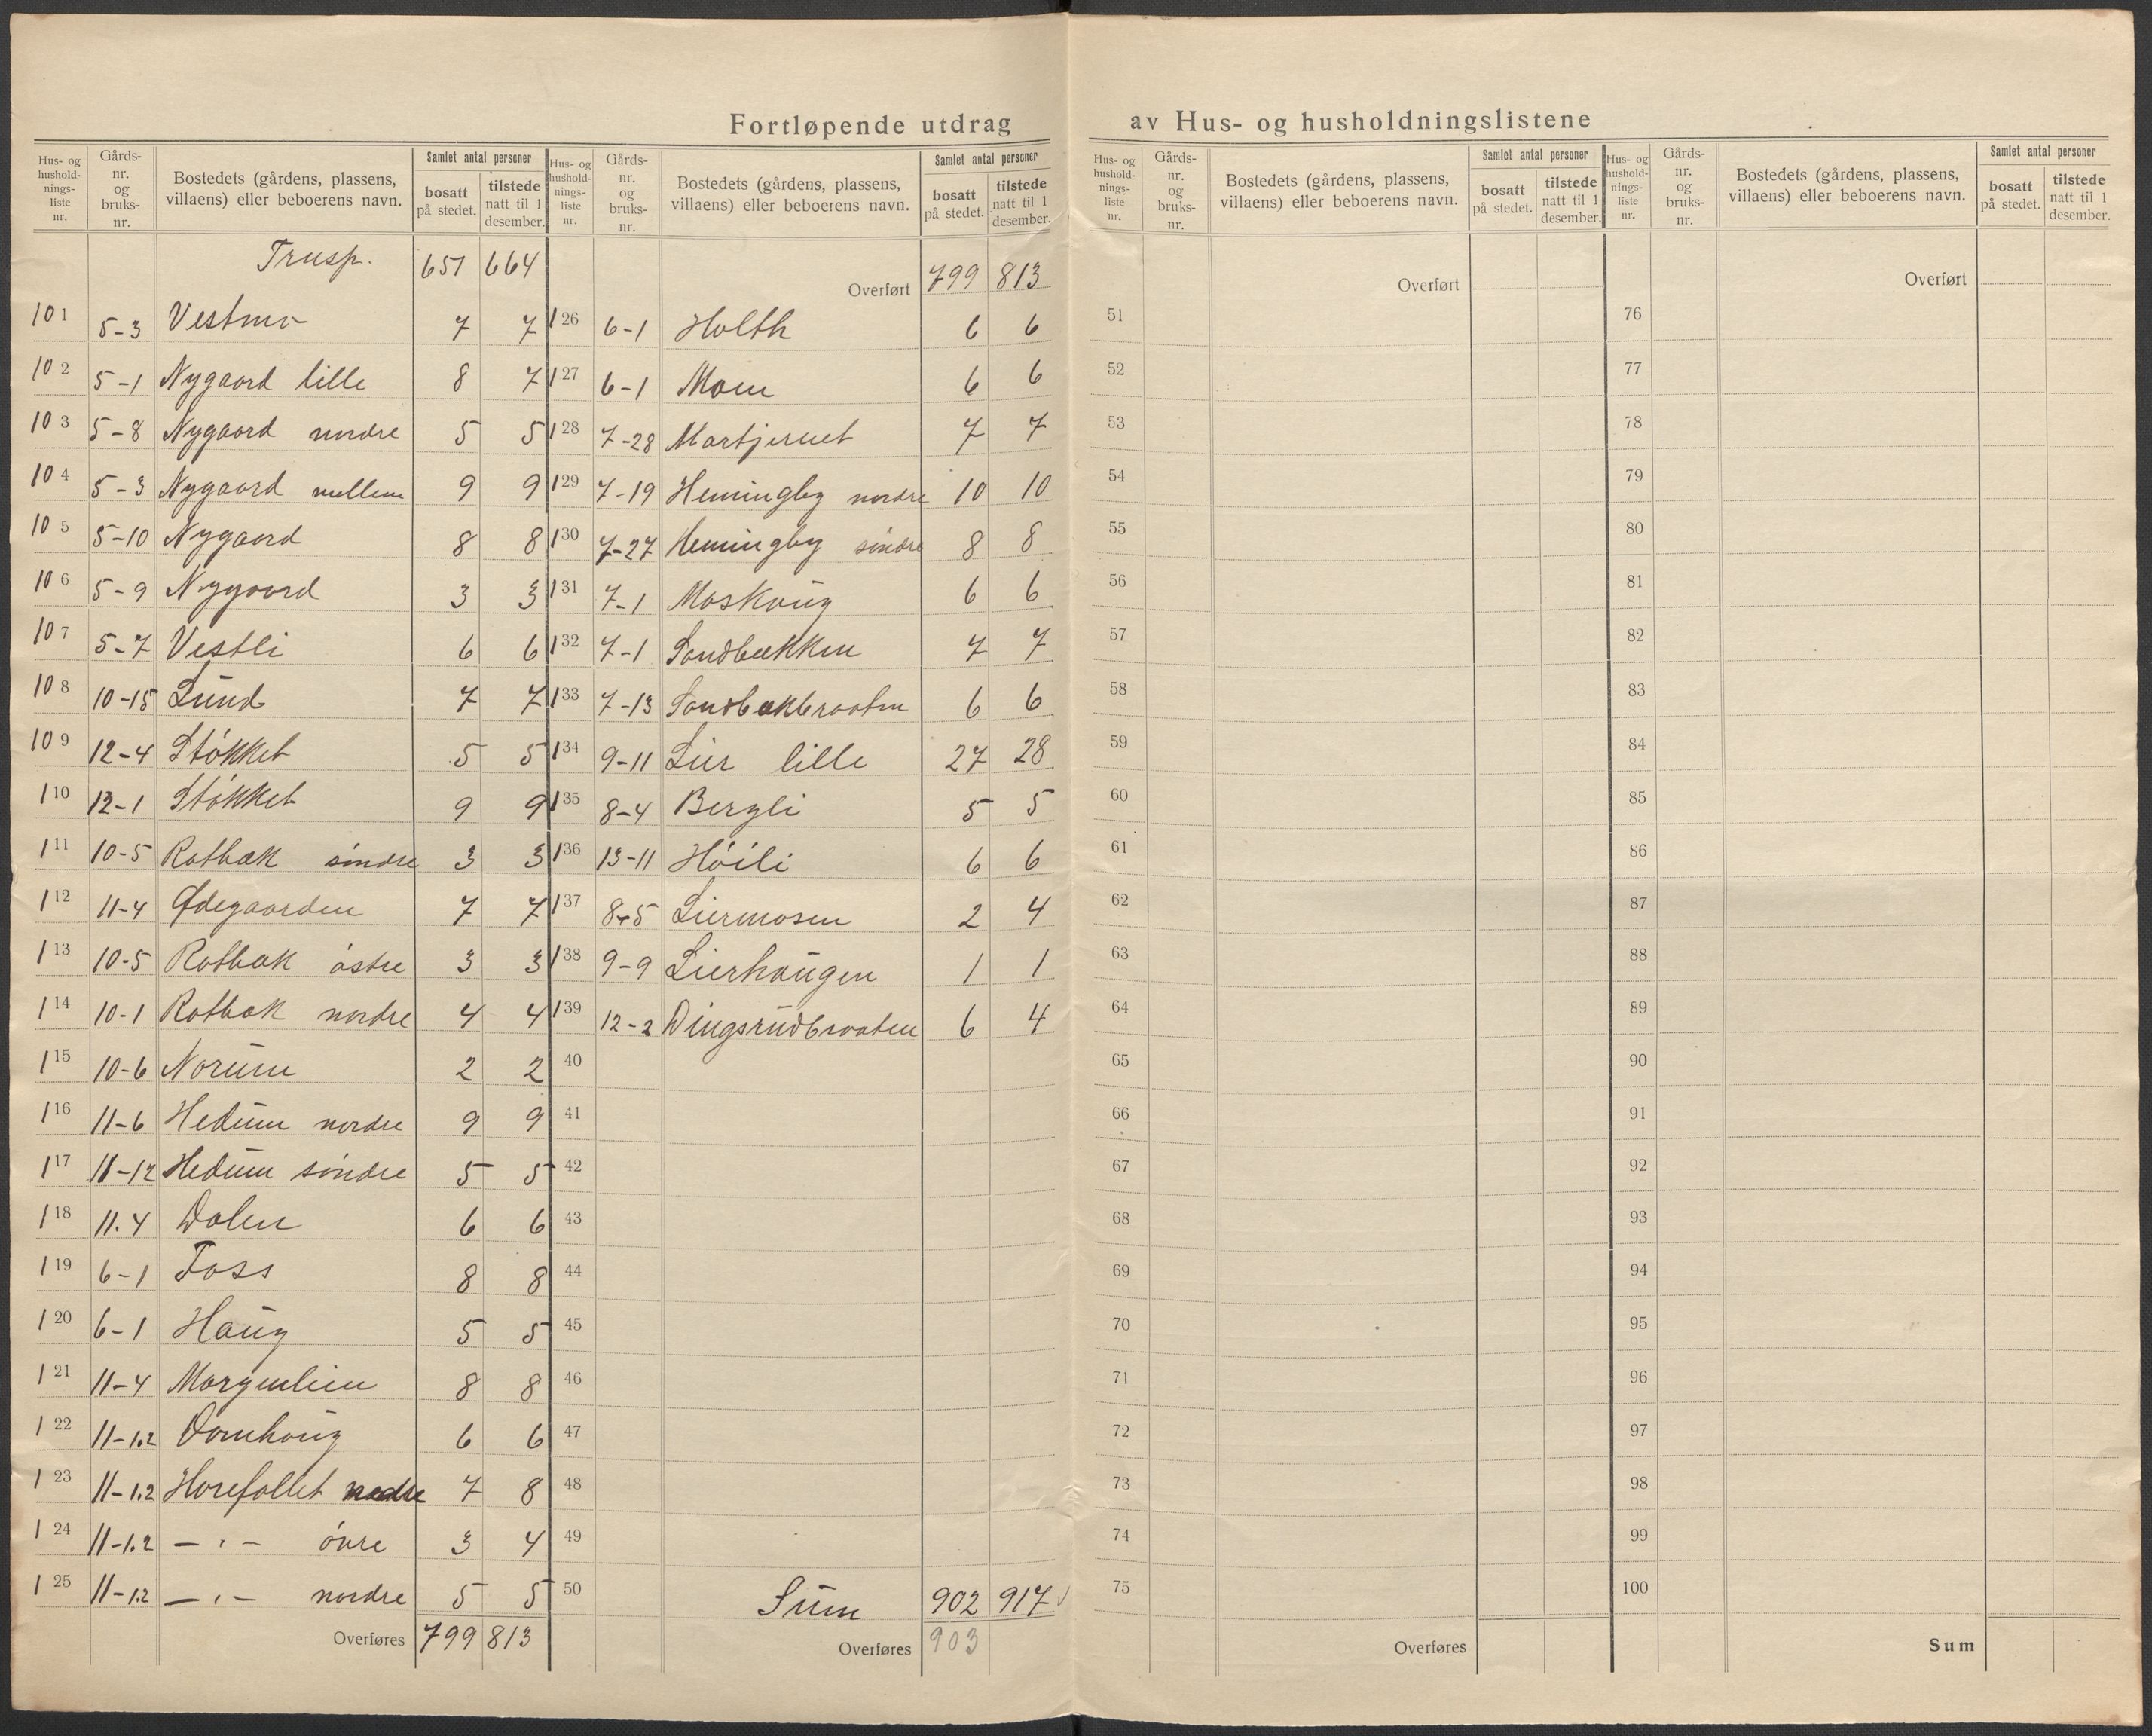 Fortløpende utdrag av Hus- og husholdningslistene
Hus- og hushold-nings-liste nr. Gårds-nr. og bruks-nr. Bostedets (gårdens, plassens, villaens) eller beboerens navn. Samlet antal personer bosatt på stedet. tilstede natt til 1 desember.
Trnsp. 651 664
101 5-3 Vestmo 7 7
102 5-1 Nygaard lille 8 7
103 5-8 Nygaard nordre 5 5
104 5-3 Nygaard mellem 9 9
105 5-10 Nygaard 8 8
106 5-9 Nygaard 3 3
107 5-7 Vestli 6 6
108 10-15 Lund 7 7
109 12-4 Stökket 5 5
110 12-1 Stökket 9 9
111 10-5 Rotbæk söndre 3 3
112 11-4 Ødegaarden 7 7
113 10-5 Rotbæk östre 3 3
114 10-1 Rotbæk nordre 4 4
115 10-6 Norum 2 2
116 11-6 Hedum nordre 9 9
117 11-12 Hedum söndre 5 5
118 11.4 Dalen 6 6
119 6-1 Foss 8 8
120 6-1 Haug 5 5
121 11-4 Morgenlien 8 8
122 11-1.2 Domhaug 6 6
123 11-1.2 Horefallet nedre 7 8
124 11-1.2 — " — övre 3 4
125 11-1.2 — " — nordre 5 5
Overføres 799 813
Hus- og hushold-nings-liste nr. Gårds-nr. og bruks-nr. Bostedets (gårdens, plassens, villaens) eller beboerens navn. Samlet antal personer bosatt på stedet. tilstede natt til 1 desember.
Overført 799 813
126 6-1 Holth 6 6
127 6-1 Moen 6 6
128 7-28 Mortjernet 7 7
129 7-19 Hemingby nordre 10 10
130 7-27 Hemingby söndre 8 8
131 7-1 Moskaug 6 6
132 7-1 Sandbækken 7 7
133 7-13 Sandbækbraaten 6 6
134 9-11 Lier lille 27 28
135 8-4 Bergli 5 5
136 13-11 Höili 6 6
137 8-5 Liermosen 2 4
138 9-9 Lierhaugen 1 1
139 12-2 Dingsrudbraaten 6 4
40
41
42
43
44
45
46
47
48
49
50 Sum 902 917
Overføres 903
Hus- og hushold-nings-liste nr. Gårds-nr. og bruks-nr. Bostedets (gårdens, plassens, villaens) eller beboerens navn. Samlet antal personer bosatt på stedet. tilstede natt til 1 desember.
Overført
51
52
53
54
55
56
57
58
59
60
61
62
63
64
65
66
67
68
69
70
71
72
73
74
75
Overføres
Hus- og hushold-nings-liste nr. Gårds-nr. og bruks-nr. Bostedets (gårdens, plassens, villaens) eller beboerens navn. Samlet antal personer bosatt på stedet. tilstede natt til 1 desember.
Overført
76
77
78
79
80
81
82
83
84
85
86
87
88
89
90
91
92
93
94
95
96
97
98
99
100
Sum